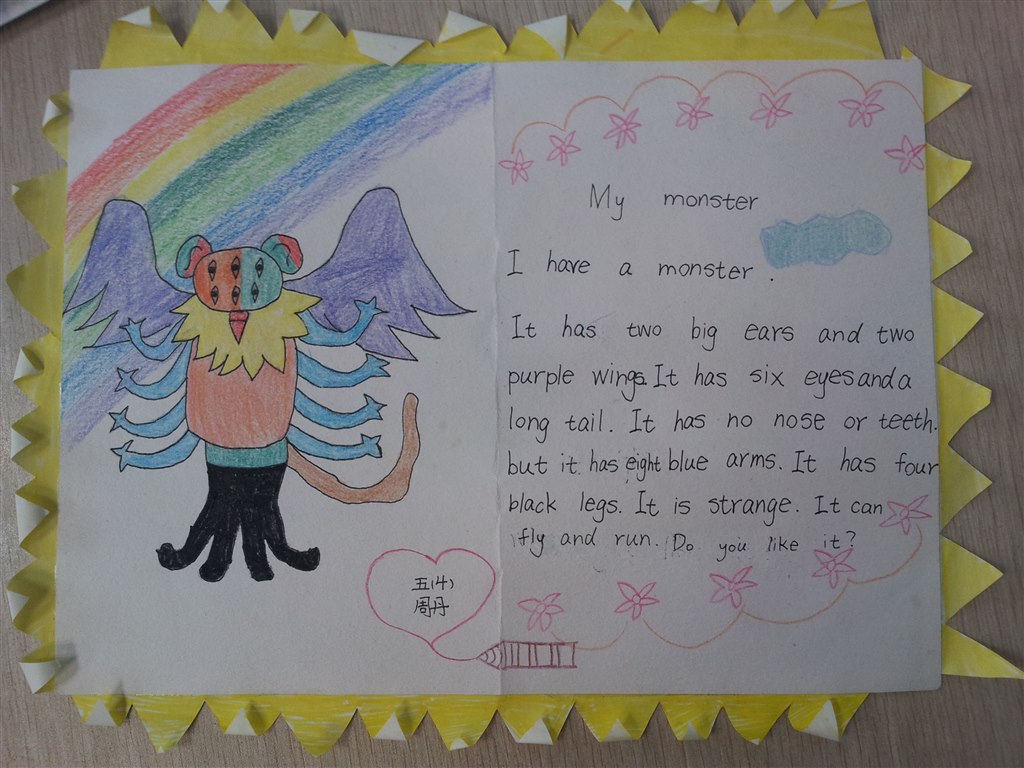 My monster
I have a monster.
It has two big ears and two
purple wings. It has six eyes and a
long tail. It has no nose or teeth.
but it has eight blue arms. It has four
black legs. It is strange. It can
fly and run. Do you like it?
五(4)
周丹